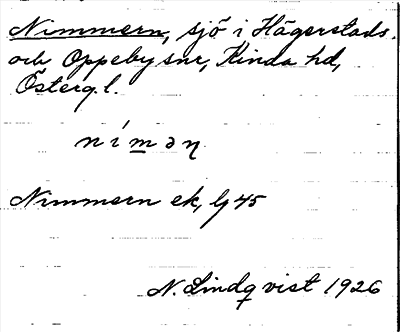 Nimmern, sjö i Hägerstads
och Oppeby snr, Kinda hd,
Österg.l.
nímən
Nimmern ek, bl 45
N. Lindqvist 1926